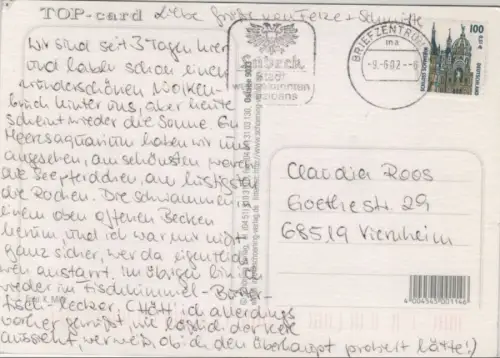 TOP-card
Liebe Grüße von Felze + Schmitte
Wir sind seit 3 Tagen hier
und haben schon einen
wunderschönen Wolken-
bruch hinter uns, aber heute
scheint wieder die Sonne. Ein
Meersaquarium haben wir uns
angesehen, am schönsten waren
die Seepferdchen, am lustigsten
die Rochen. Die schwammen in
einem oben offenen Becken
herum, und ich war mir nicht
ganz sicher, wer da eigentlich
wen anstarrt. Im übrigen bin ich
wieder im Fischhimmel - Butter-
fisch, lecker. (Hätt' ich allerdings
vorher gewußt, wie häßlich der Kerl
aussieht, wer weiß, ob ich den überhaupt probiert hätte!)
BRIEFZENTRUM
-9.-6.02.--6
100
Claudia Roos
Goethestr. 29
68519 Viernheim
4004545001146